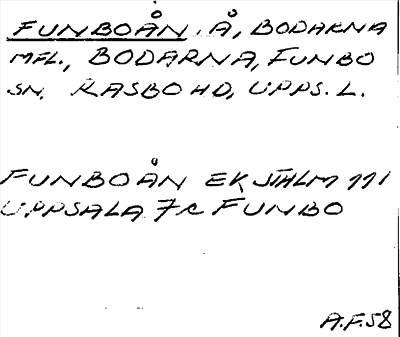 FUNBOÅN, Å, BODARNA
MFL., BODARNA, FUNBO
SN. RASBO HD, UPPS. L.
FUNBOÅN EK STHLM 111
UPPSALA 7c FUNBO
A.F.58